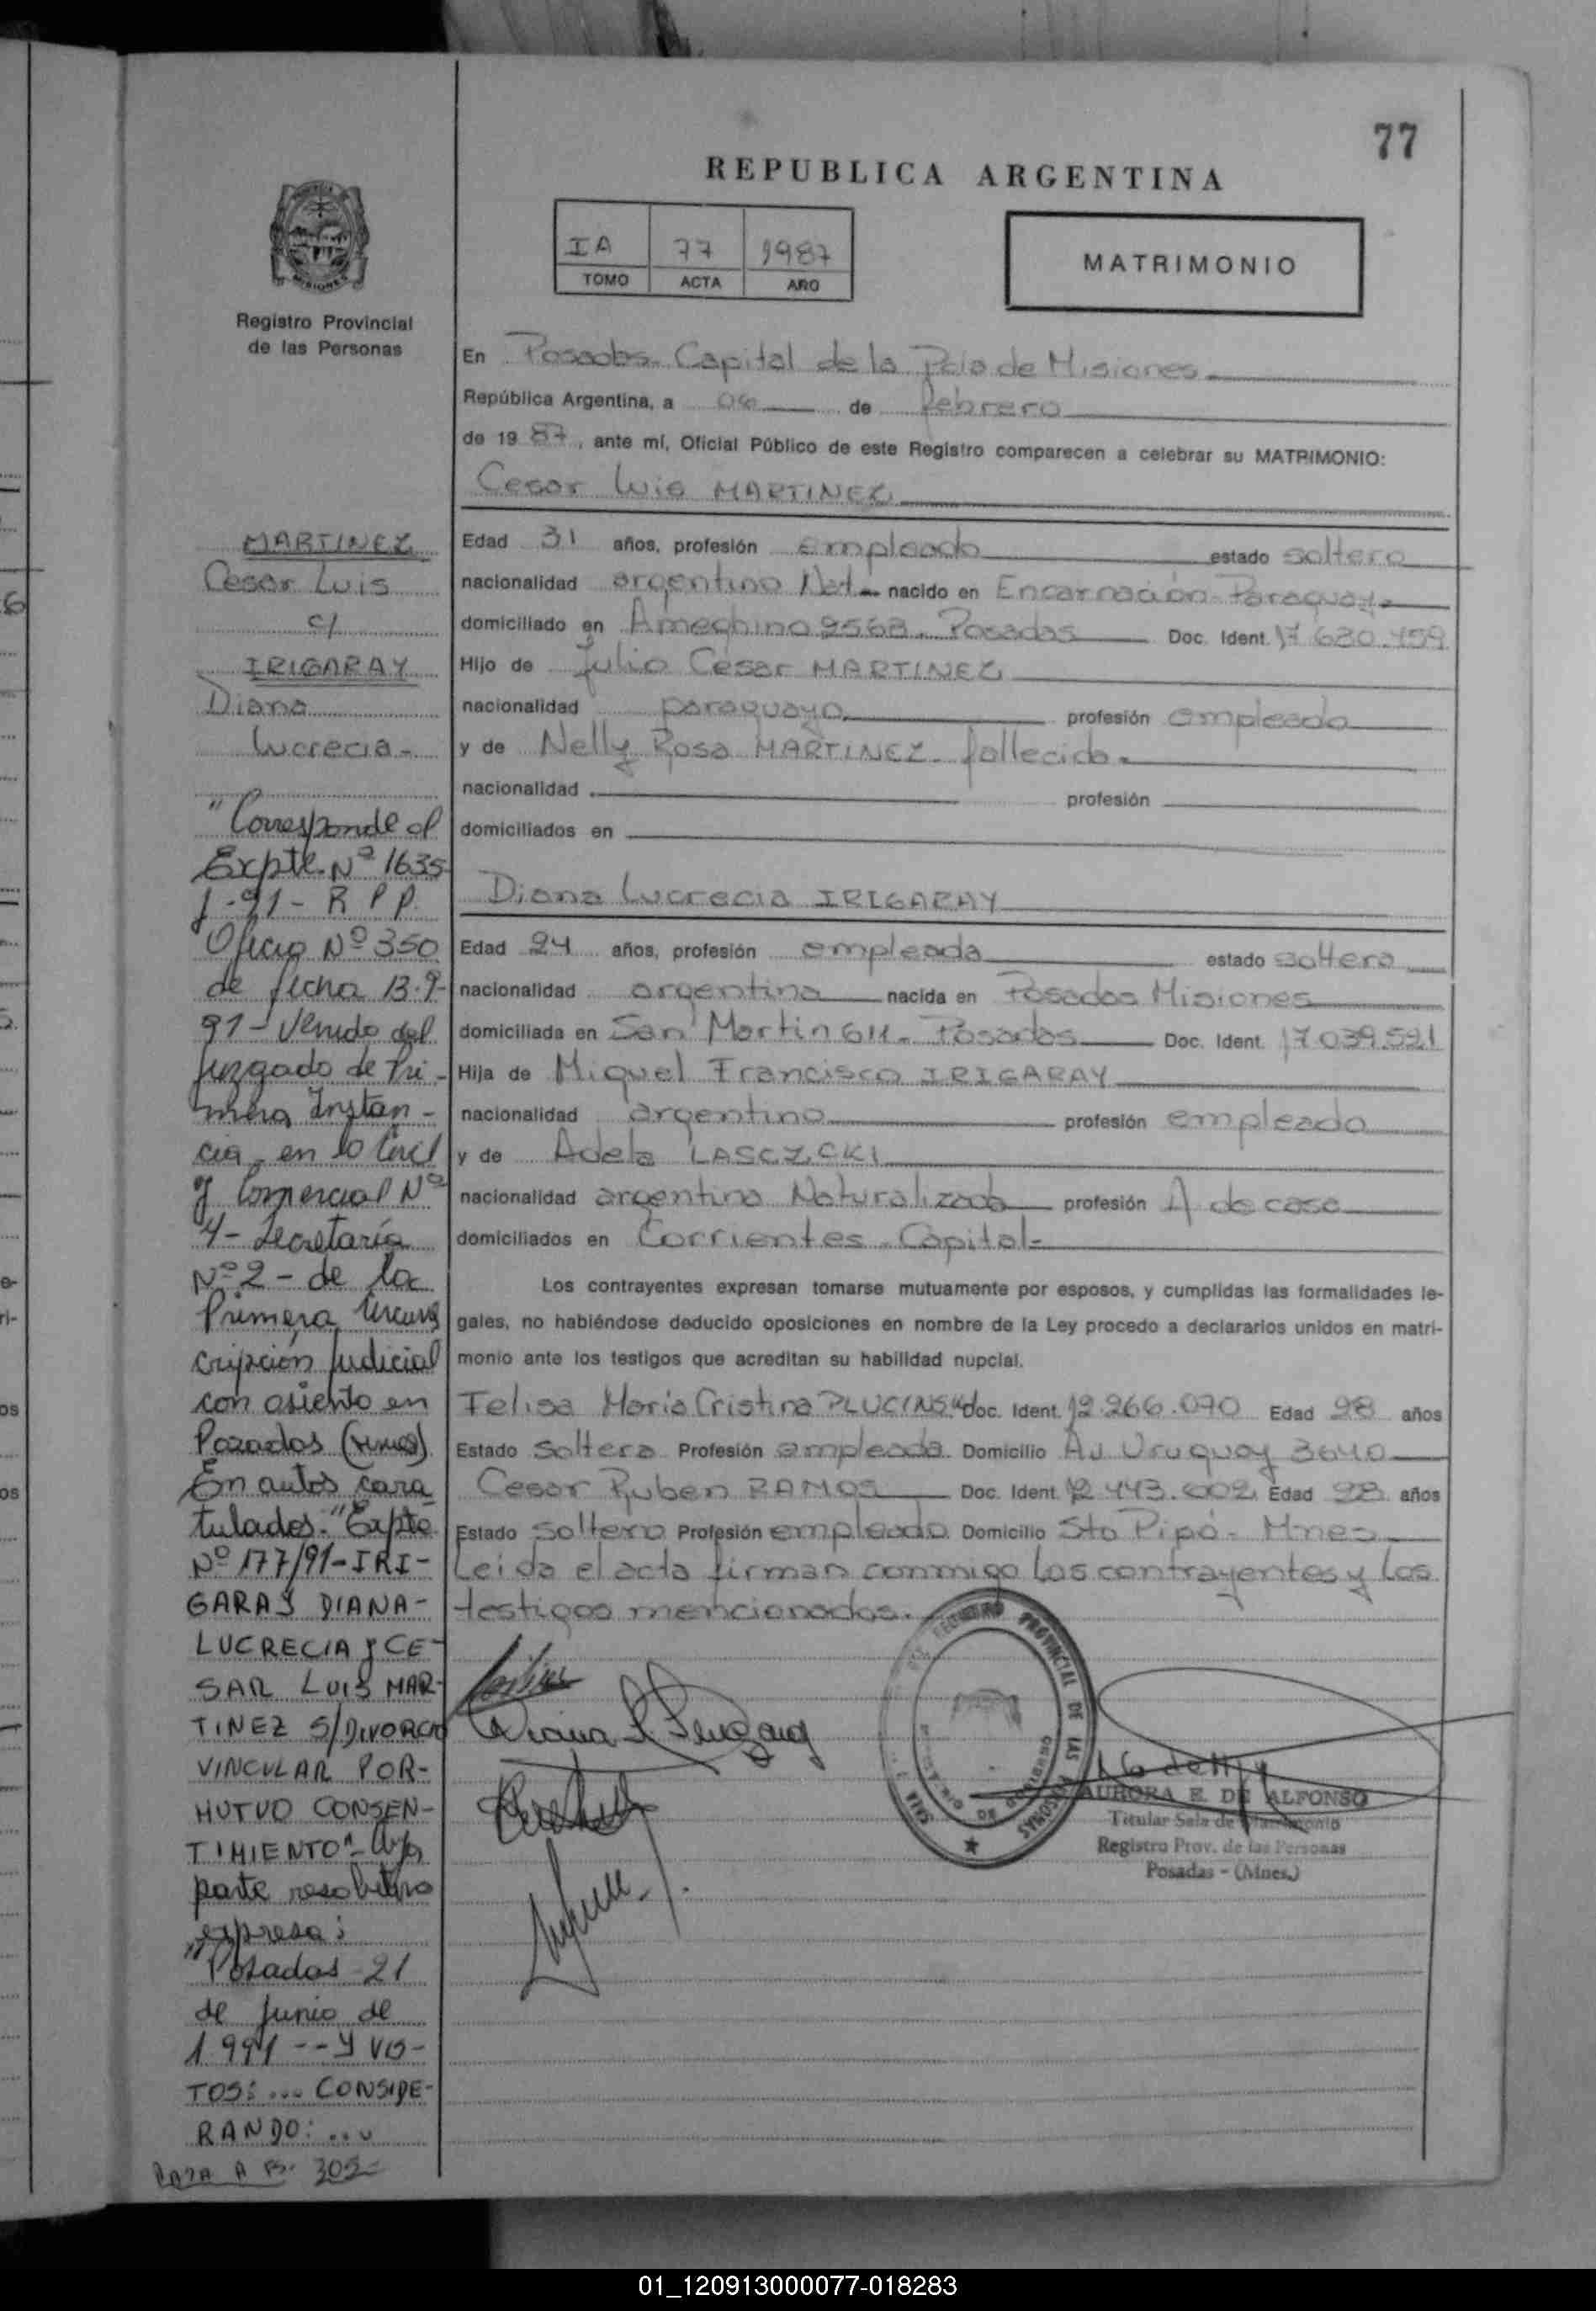 77
REPUBLICA ARGENTINA
IA 77 1987
TOMO ACTA AÑO
MATRIMONIO
Registro Provincial
de las Personas
En Posadas - Capital de la Pcia de Misiones
República Argentina, a 06 de febrero
de 1987, ante mí, Oficial Público de este Registro comparecen a celebrar su MATRIMONIO:
Cesar Luis MARTINEZ
Edad 31 años, profesión empleado estado soltero
nacionalidad argentino Nat. nacido en Encarnación - Paraguay -
domiciliado en Ameghino 2568 - Posadas Doc. Ident. 17.680.459
Hijo de Julio Cesar MARTINEZ
nacionalidad paraguayo profesión empleado
y de Nelly Rosa MARTINEZ - fallecida -
nacionalidad profesión
domiciliados en
Diana Lucrecia IRIGARAY
Edad 24 años, profesión empleada estado soltera
nacionalidad argentina nacida en Posadas Misiones
domiciliada en San Martin 611 - Posadas Doc. Ident. 17.039.521
Hija de Miguel Francisco IRIGARAY
nacionalidad argentino profesión empleado
y de Adela
nacionalidad argentina Naturalizada profesión A de casa
domiciliados en Corrientes - Capital -
Los contrayentes expresan tomarse mutuamente por esposos, y cumplidas las formalidades le-
gales, no habiéndose deducido oposiciones en nombre de la Ley procedo a declararlos unidos en matri-
monio ante los testigos que acreditan su habilidad nupcial.
Felisa Maria Cristina PLUCINSKI Doc. Ident. 12.266.070 Edad 28 años
Estado Soltera Profesión empleada Domicilio Av Uruguay 3640
Cesar Ruben RAMOS Doc. Ident. 12.443.602 Edad 28 años
Estado soltero Profesión empleado Domicilio Sto Pipó - Mnes
Leida el acta firman conmigo los contrayentes y los
testigos mencionados.
REGISTRO PROVINCIAL DE LAS PERSONAS
AURORA E. DE ALFONSO
Titular Sala de Matrimonio
Registro Prov. de las Personas
Posadas - (Mnes.)
MARTINEZ
Cesar Luis
c/
IRIGARAY
Diana
Lucrecia -
"Corresponde al
Expte. Nº 1635
J - 91 - R P P.
Oficio Nº 350
de fecha 13-9-
91 - Venido del
Juzgado de Pri-
mera Instan-
cia en lo Civil
y Comercial Nº
4 - Secretaría
Nº 2 - de la
Primera Circuns
cripción Judicial
con asiento en
Posadas (Mnes)
En autos cara
tulados: "Expte
Nº 177/91 - IRI-
GARAY DIANA-
LUCRECIA y CE-
SAR LUIS MAR-
TINEZ S/DIVORCIO
VINCULAR POR-
MUTUO CONSEN-
TIMIENTO" - Cuya
parte resolutiva
expresa:
"Posadas 21
de Junio de
1991 -- Y VIS-
TOS: ... CONSIDE-
RANDO: ...
PASA A Fs. 305 -
01_120913000077-018283